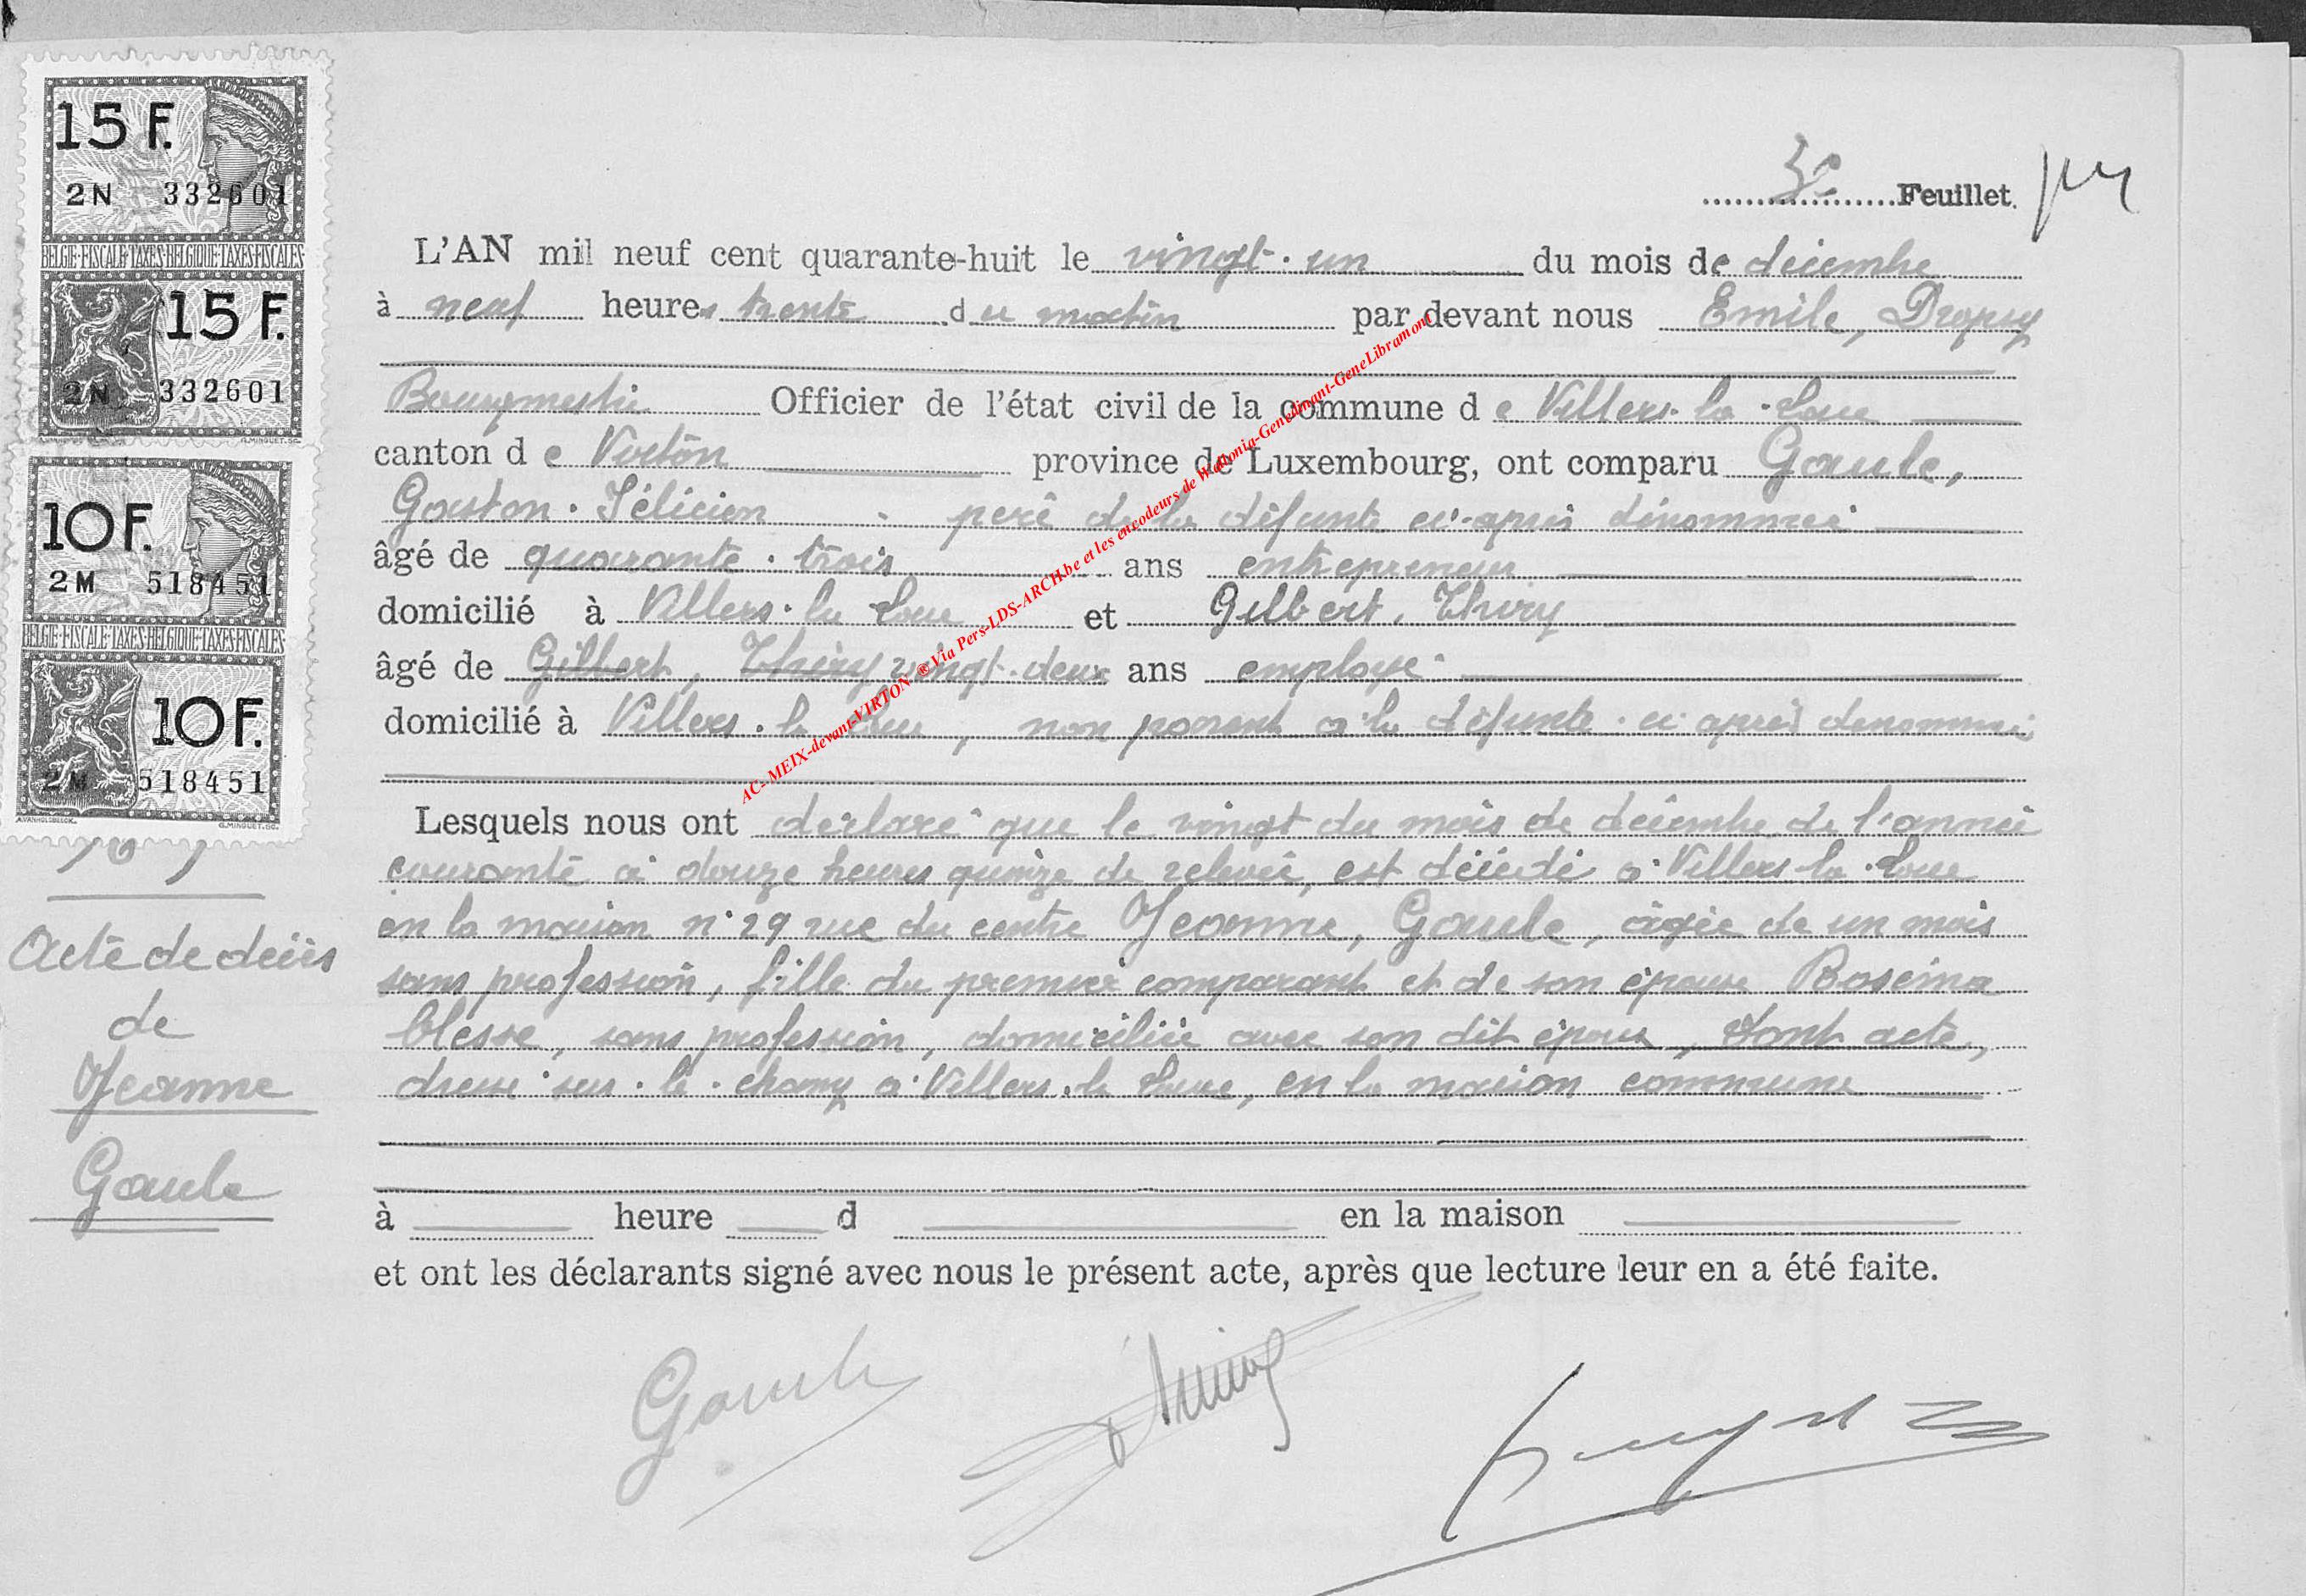 15 F.
2N 332601
BELGIE·FISCALE TAXES·BELGIQUE·TAXES FISCALES
15 F.
2N 332601
G.MINGUET.SC.
10 F.
2M 518451
BELGIE·FISCALE TAXES·BELGIQUE·TAXES FISCALES
10 F.
2M 518451
G.MINGUET.SC.
Acte de décès
de
Jeanne
Gaule
3e Feuillet.
L'AN mil neuf cent quarante-huit le vingt-un du mois de décembre
à neuf heures trente du matin par devant nous Emile, Dropsy
Bourgmestre Officier de l'état civil de la commune de Villers-la-Loue
canton de Virton province de Luxembourg, ont comparu Gaule,
Gaston-Félicien - père de la défunte ci-après dénommée
âgé de quarante-trois ans entrepreneur
domicilié à Villers-la-Loue et Gilbert, Thiry
âgé de Gilbert, Thiry vingt-deux ans employé
domicilié à Villers-la-Loue, non parent à la défunte ci-après dénommée
Lesquels nous ont déclaré que le vingt du mois de décembre de l'année
courante à douze heures quinze de relevée, est décédé à Villers-la-Loue
en la maison n° 29 rue du centre Jeanne, Gaule, âgée de un mois
sans profession, fille du premier comparant et de son épouse Roseina
blesse, sans profession, domiciliée avec son dit époux, dont acte,
dressé sur-le-champ à Villers-la-Loue, en la maison commune
à heure d en la maison
et ont les déclarants signé avec nous le présent acte, après que lecture leur en a été faite.
Gaule
AC- MEIX-devant-VIRTON ®Via Pers-LDS-ARCH.be et les encodeurs de Wallonia-Genedinant-GeneLibramont